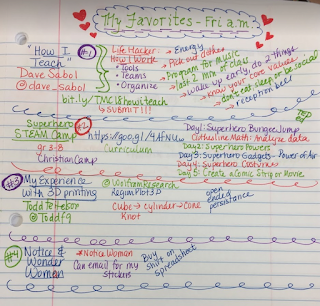 My Favorites - Fri a.m.
"How I Teach" #1
Dave Sabol
@dave_sabol
Life Hacker
How I Work
• Tools
• Teams
• Organize
→ Energy
→ Pick out clothes
→ Program for music
last 2 min. of class
→ wake up early, do 2 things
→ Know your core values
→ don't eat, sleep or be social
reception beer
bit.ly/TMC18howiteach
↳ SUBMIT!!!
Superhero #2
STEAM Camp
gr 3-8
Christian Camp
https://goo.gl/4AfNUw
Curriculum
Day1: Superhero Bungee Jump
Cathy line Math: Analyze data
Day2: Superhero Powers
Day3: Superhero Gadgets - Power of Air
Day4: Superhero Costumes
Day5: Create a Comic Strip or Movie
#3 My Experience
with 3D printing
Todd Feitelson
@Toddf9
@WolframResearch
RegionPlot3D
Cube → cylinder → Cone
Knot
open ended
persistance
#4 Notice &
Wonder
Woman
*Notice Woman
Can email for my
stickers
Buy
shirt or
spreadsheet